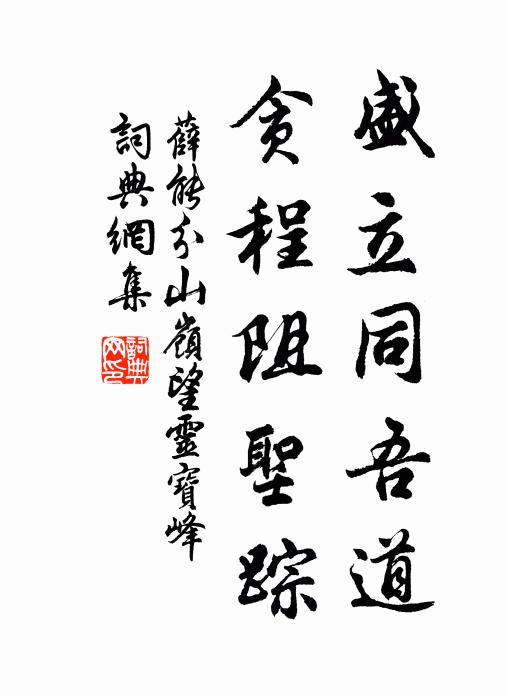 盛立同吾道
貪程阻聖踪
薛能分山嶺望靈寶峰
詞典網集
詞典
网印